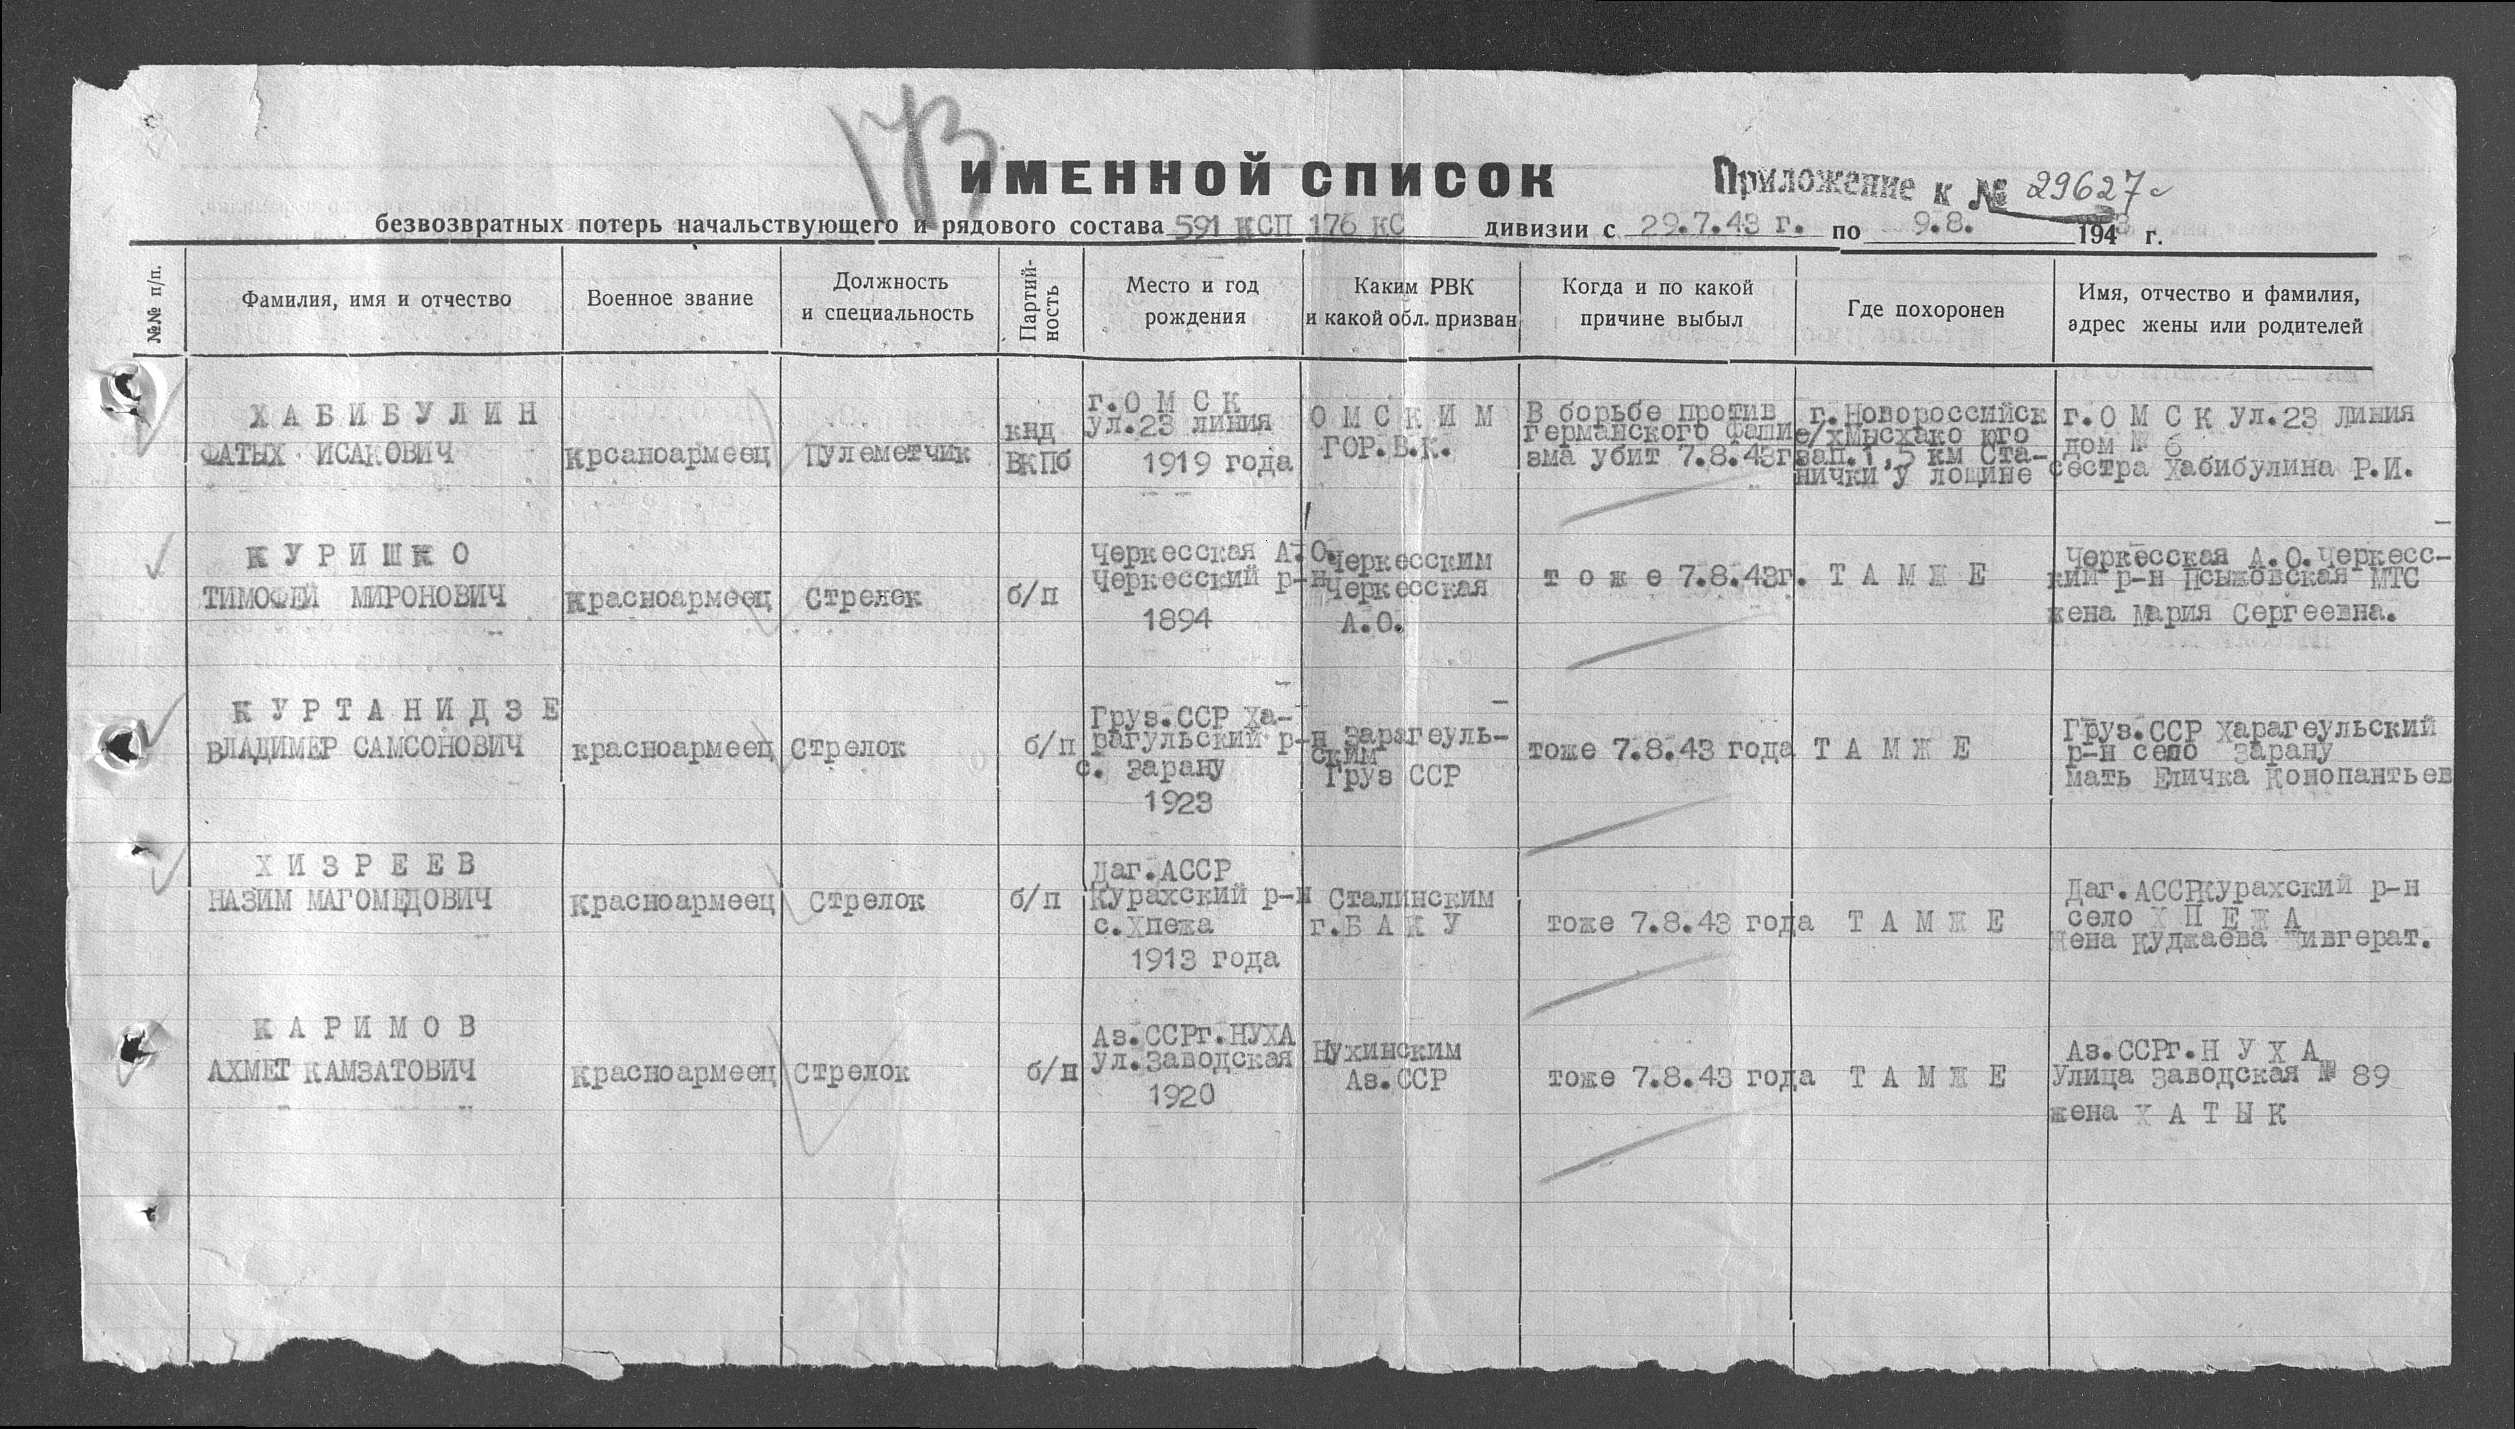 173
ИМЕННОЙ СПИСОК
Приложение к № 29627с
безвозвратных потерь начальствующего и рядового состава 591 КСП 176 КС дивизии с 29.7.43 г. по 9.8. 1943 г.
№№ п/п.
Фамилия, имя и отчество
Военное звание
Должность
и специальность
Партий-
ность
Место и год
рождения
Каким РВК
и какой обл. призван
Когда и по какой
причине выбыл
Где похоронен
Имя, отчество и фамилия,
адрес жены или родителей
ХАБИБУЛИН
ФАТЫХ ИСАКОВИЧ
крсаноармеец
Пулеметчик
кнд
ВКПб
г.ОМСК
ул.23 линия
1919 года
ОМСКИМ
ГОР.В.К.
В борьбе против
германского фаши
зма убит 7.8.43г
г.Новороссийск
с/хМысхако юго
зап.1,5 км Ста-
нички у лощине
г.ОМСК ул.23 линия
дом № 6
сестра Хабибулина Р.И.
КУРИШКО
ТИМОФЕЙ МИРОНОВИЧ
красноармеец
Стрелок
б/п
Черкесская А.О.
Черкесский р-н
1894
Черкесским
Черкесская
А.О.
тоже 7.8.43г.
ТАМЖЕ
Черкесская А.О.Черкесс-
кий р-н Псыжовская МТС
жена Мария Сергеевна.
КУРТАНИДЗЕ
ВЛАДИМЕР САМСОНОВИЧ
красноармеец
Стрелок
б/п
Груз.ССР Ха-
рагульский р-н
с. Зарану
1923
Зарагеуль-
ским
Груз ССР
тоже 7.8.43 года
ТАМЖЕ
Груз.ССР Харагеульский
р-н село Зарану
мать Еличка Конопантьев
ХИЗРЕЕВ
НАЗИМ МАГОМЕДОВИЧ
Красноармеец
Стрелок
б/п
Даг.АССР
Курахский р-н
с.Хпежа
1913 года
Сталинским
г.БАКУ
тоже 7.8.43 года
ТАМЖЕ
Даг.АССРКурахский р-н
село ХПЕЖА
жена Куджаева
КАРИМОВ
АХМЕТ КАМЗАТОВИЧ
Красноармеец
Стрелок
б/п
Аз.ССРг.НУХА
ул.Заводская
1920
Нухинским
Аз.ССР
тоже 7.8.43 года
ТАМЖЕ
Аз.ССРг.НУХА
Улица Заводская № 89
жена ХАТЫК